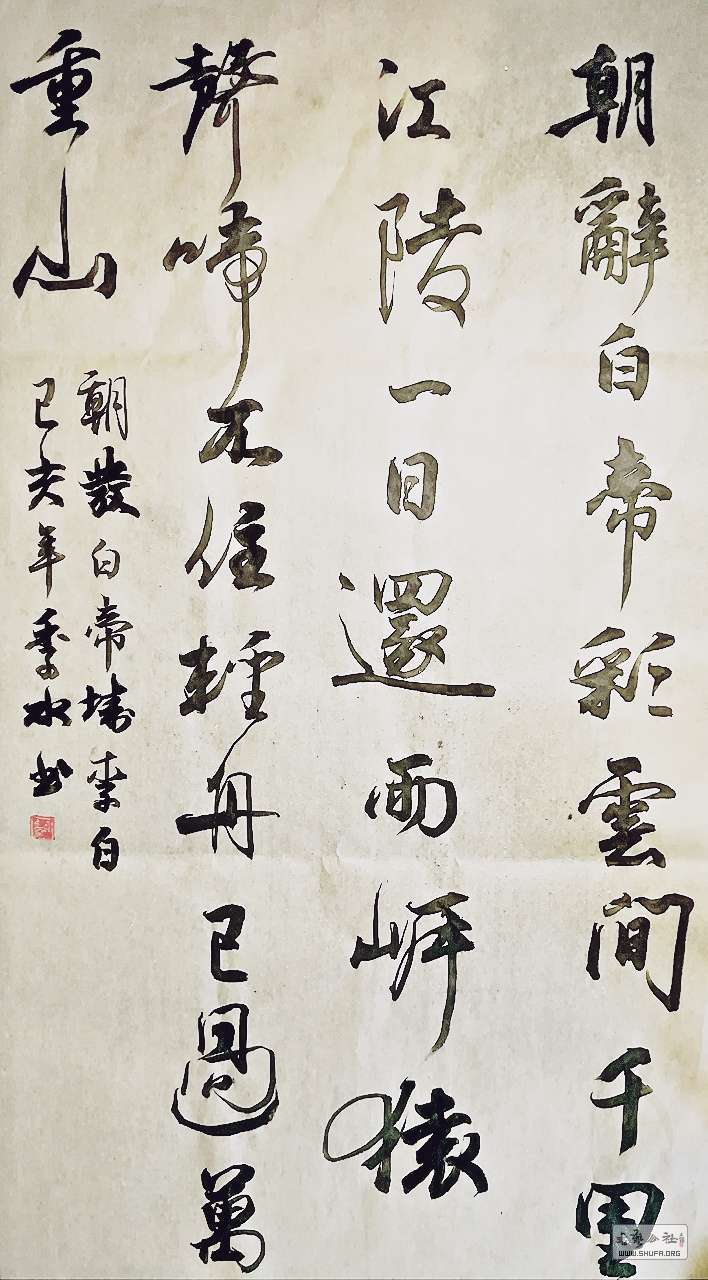 朝辭白帝彩雲間千里
江陵一日還兩岍猿
聲啼不住輕舟已過萬
重山
朝發白帝城李白
己亥年季水书
WWW.SHUFA.ORG